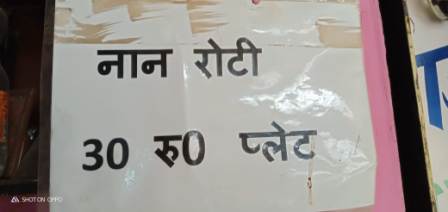 नान रोटी
30 रु0 प्लेट
SHOT ON OPPO